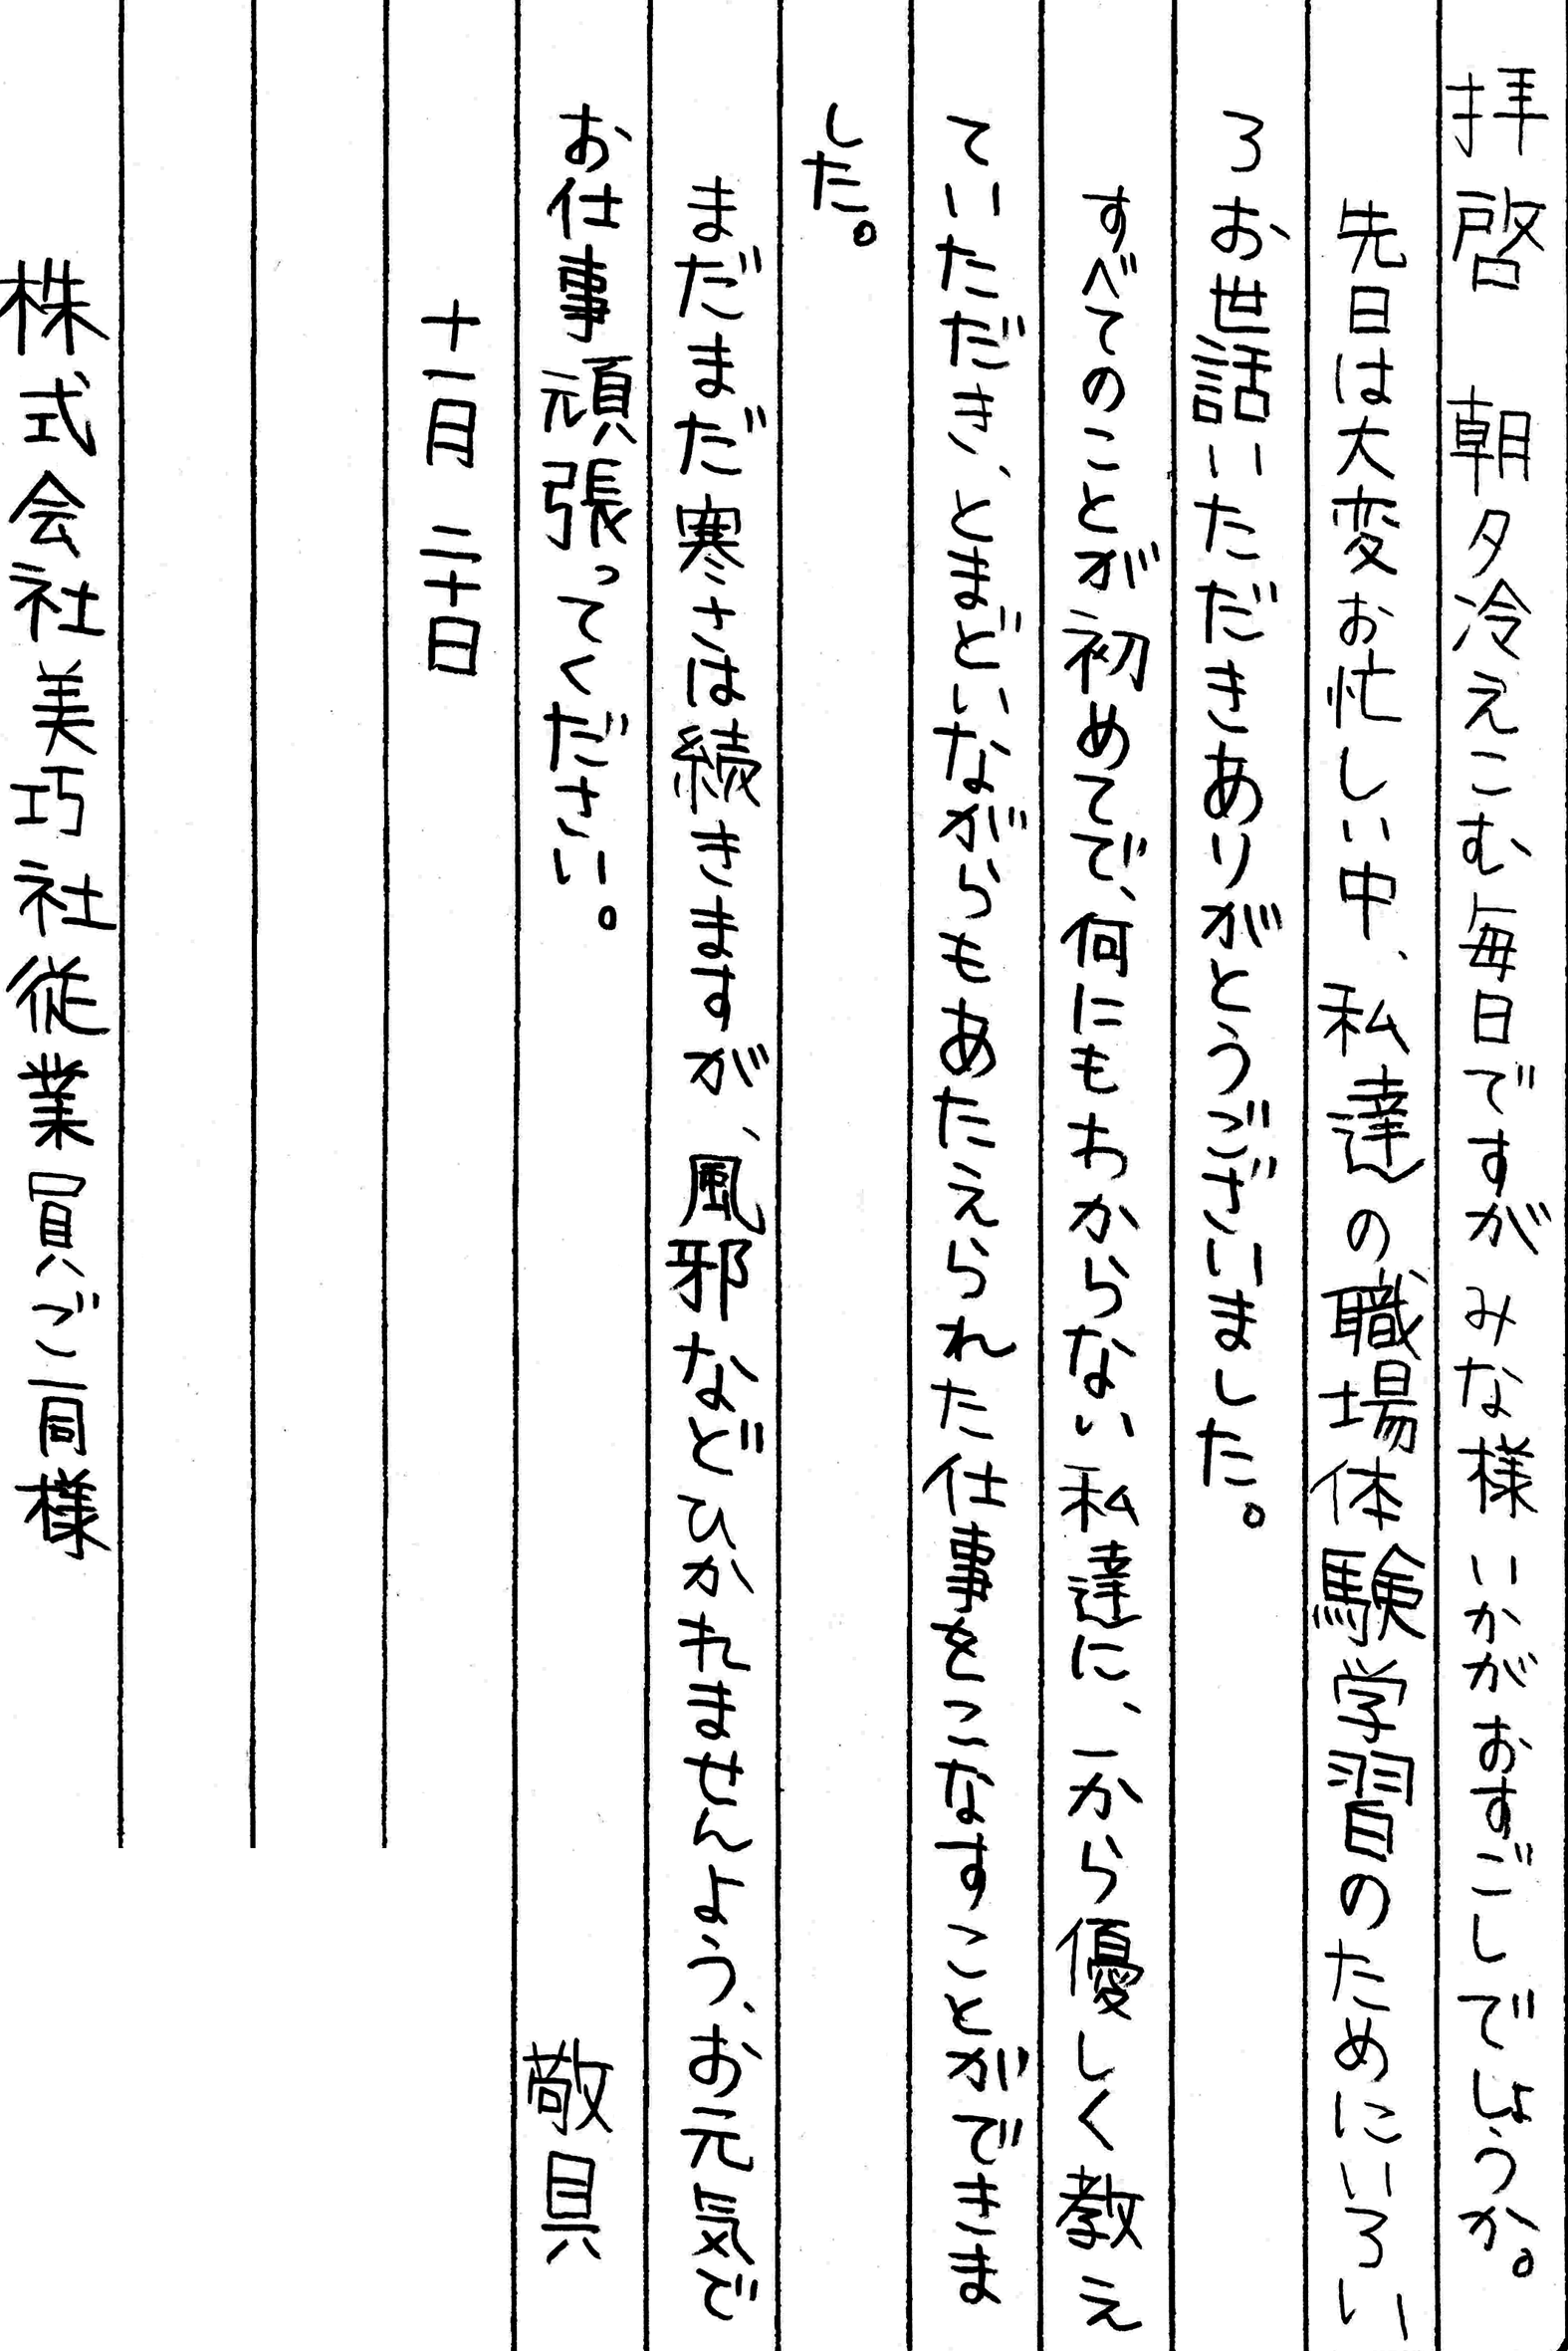 拝啓　朝夕冷えこむ毎日ですがみな様いかがおすごしでしょうか。
先日は大変お忙しい中、私達の職場体験学習のためにいろい
ろお世話いただきありがとうございました。
すべてのことが初めてで、何にもわからない私達に、一から優しく教え
ていただき、とまどいながらもあたえられた仕事をこなすことができま
した。
まだまだ寒さは続きますが、風邪などひかれませんよう、お元気で
お仕事頑張ってください。　敬具
十一月二十日
株式会社美巧社従業員ご一同様